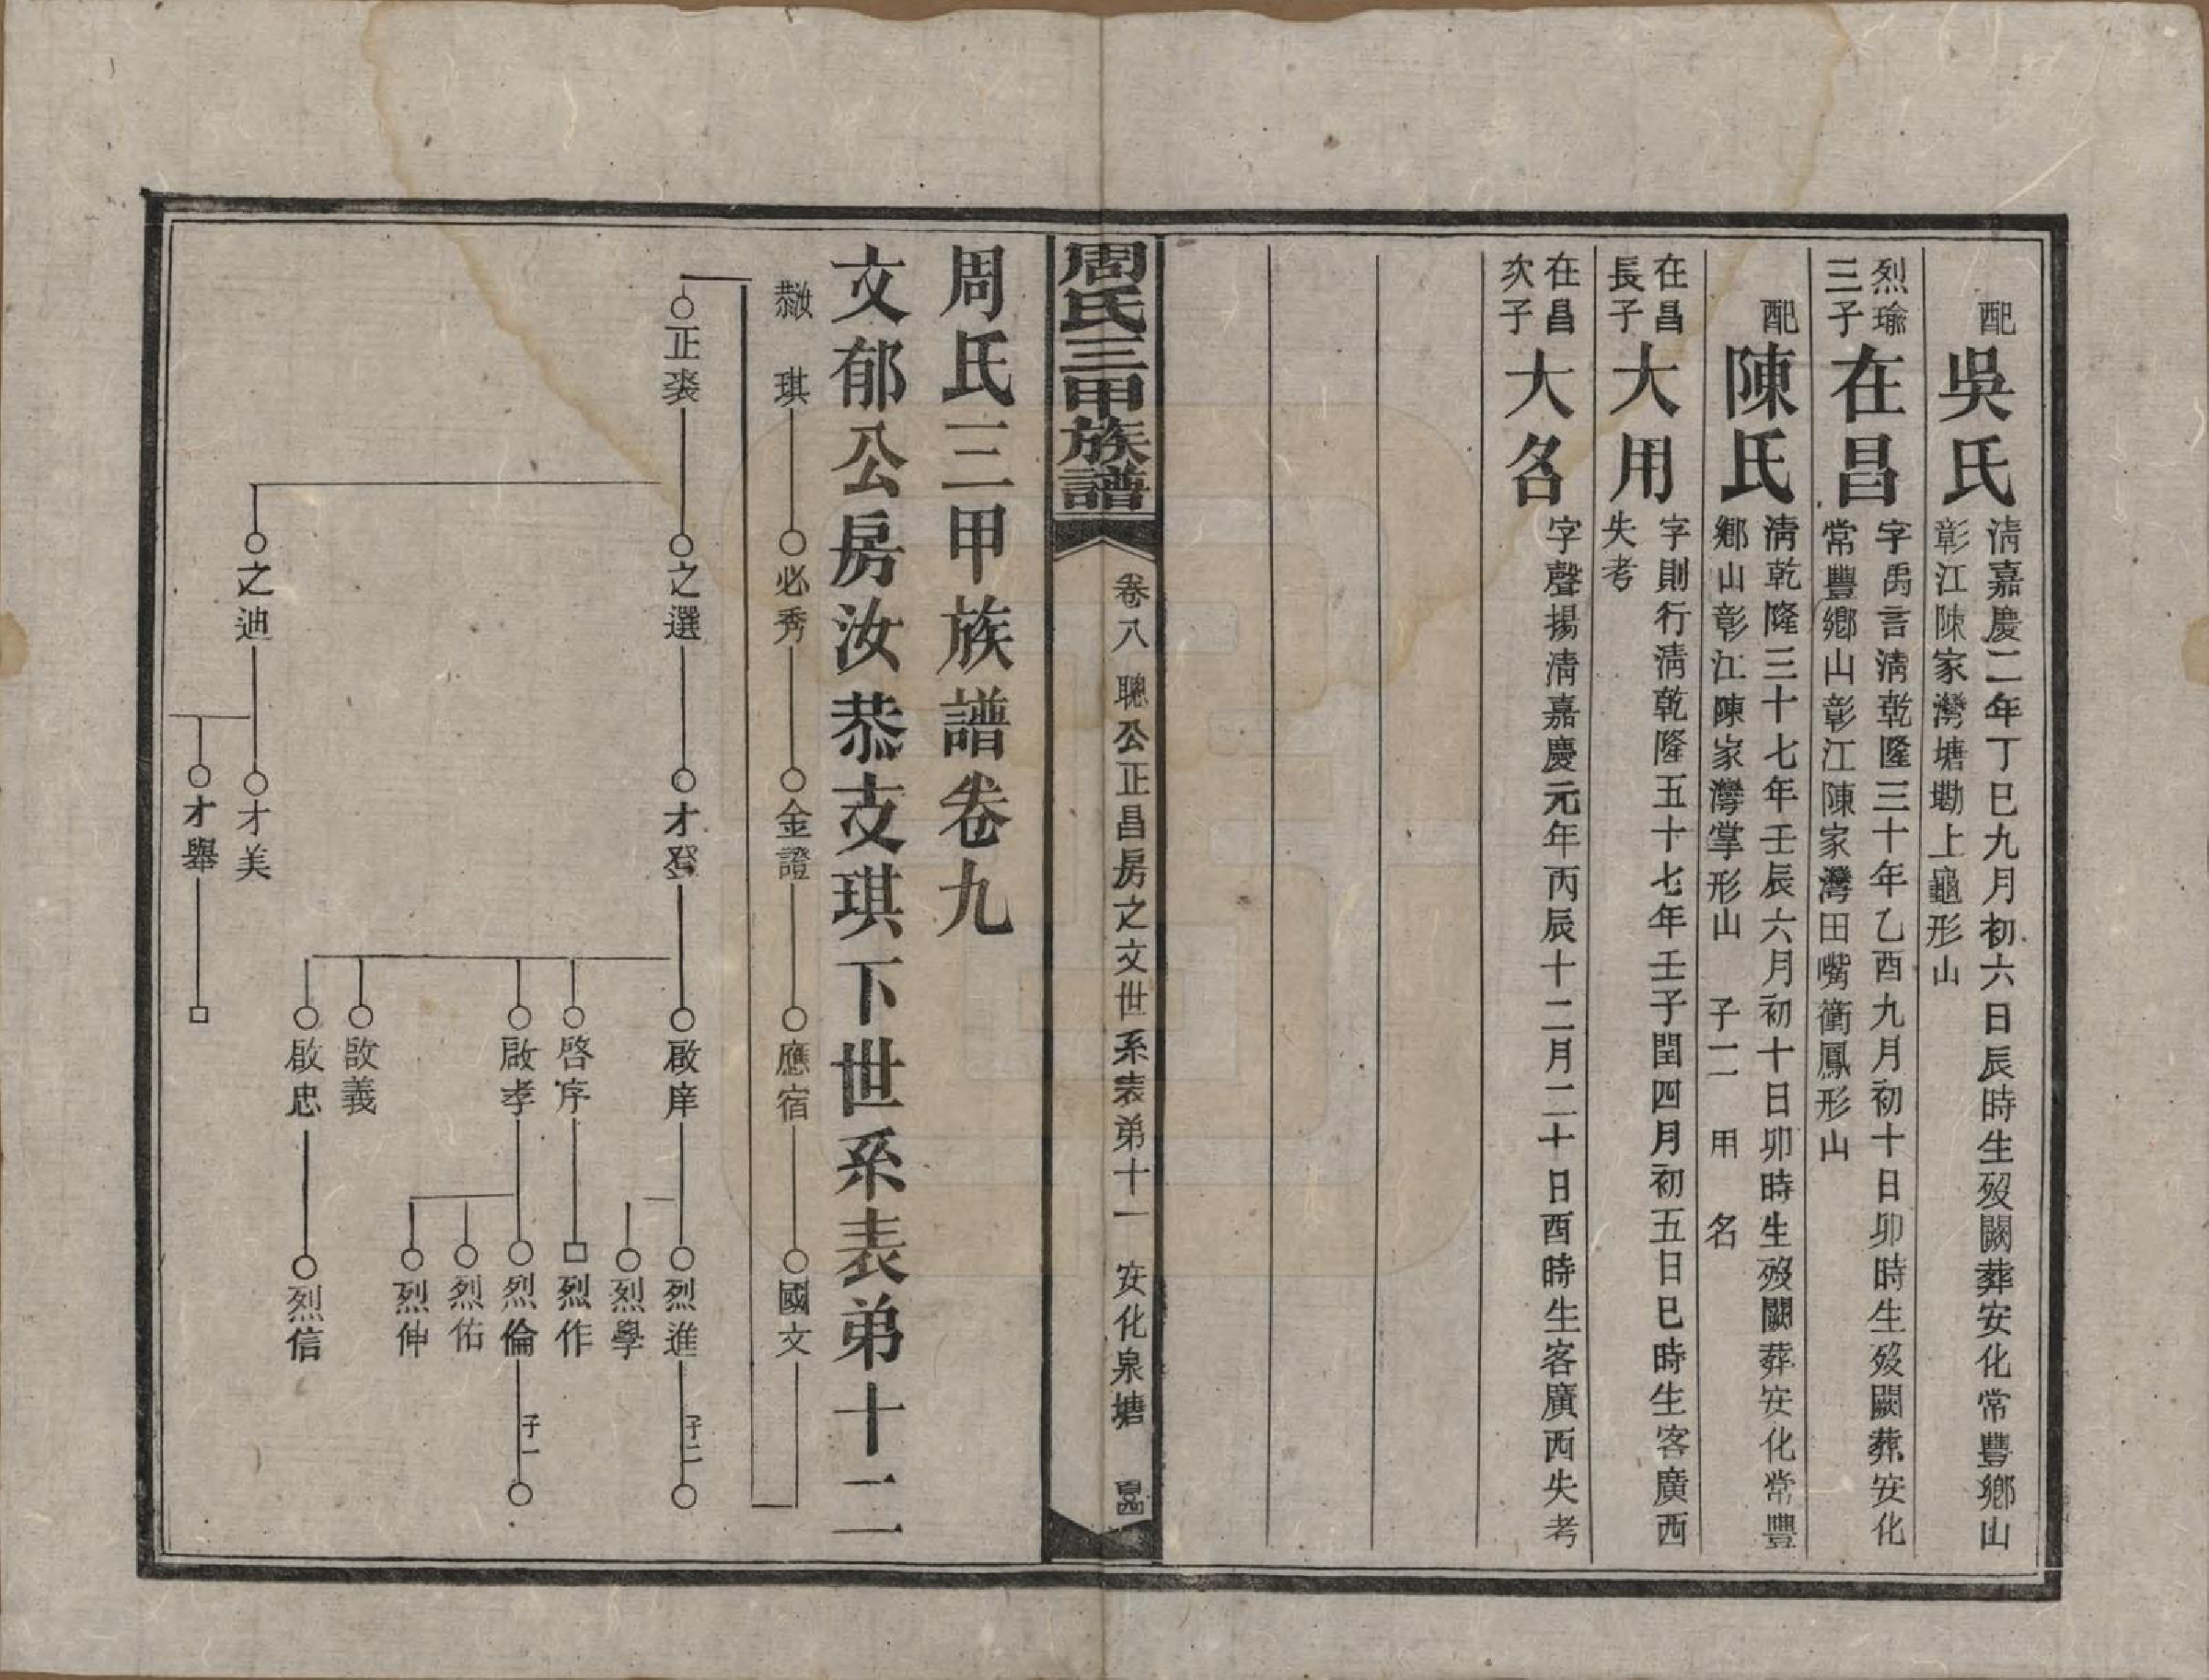 配
吳氏
淸嘉慶二年丁巳九月初六日辰時生歿闕葬安化常豐鄕山
彰江陳家灣塘墈上龜形山
烈瑜
三子
在昌
字禹言淸乾隆三十年乙酉九月初十日卯時生歿闕葬安化
常豐鄕山彰江陳家灣田嘴衝鳳形山
配
陳氏
淸乾隆三十七年壬辰六月初十日卯時生歿闕葬安化常豐
鄕山彰江陳家灣掌形山 子二 用 名
在昌
長子
大用
字則行淸乾隆五十七年壬子閏四月初五日巳時生客廣西
失考
在昌
次子
大名
字聲揚淸嘉慶元年丙辰十二月二十日酉時生客廣西失考
周氏三甲族譜
卷八 聰公正昌房之文世系表弟十一 安化泉塘
周氏三甲族譜卷九
文郁公房汝恭支琪下世系表弟十二
汝恭 琪
必秀
金證
應宿
國文
正裘
之選
才登
啟庠
烈進
子二
烈學
啓序
烈作
啟孝
烈倫
子一
烈佑
烈伸
啟義
啟忠
烈信
之迪
才美
才舉